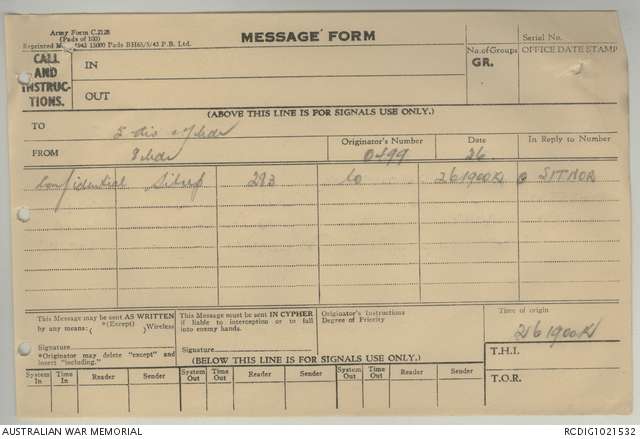 Army Form C.2128
(Pads of 100)
Reprinted 1943 15000 Pads BH65/5/43 P.B. Ltd.
MESSAGE FORM
Serial No.
CALL
AND
INSTRUC-
TIONS.
IN
OUT
No. of Groups
GR.
OFFICE DATE STAMP
(ABOVE THIS LINE IS FOR SIGNALS USE ONLY.)
TO
FROM
Originator's Number
0499
Date
26
In Reply to Number
Confidential Sitrep 293 to 261900K SITNOR
This Message may be sent AS WRITTEN
by any means: *(Except) Wireless
Signature
*Originator may delete "except" and
insert "including."
This Message must be sent IN CYPHER
if liable to interception or to fall
into enemy hands.
Signature
Originator's Instructions
Degree of Priority
Time of origin
261900K
T.H.I.
T.O.R.
(BELOW THIS LINE IS FOR SIGNALS USE ONLY.)
System In Time In Reader Sender System Out Time Out Reader Sender System Out Time Out Reader Sender
AUSTRALIAN WAR MEMORIAL RCDIG1021532